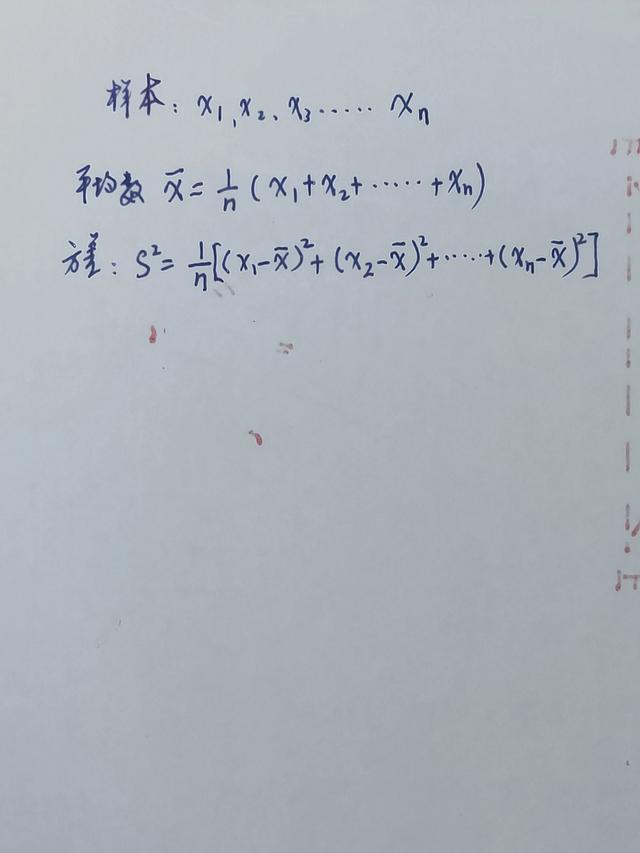 样本: x₁, x₂、x₃ ····· xₙ
平均数 x̄ = 1/n (x₁+x₂+·····+xₙ)
方差: S² = 1/n[(x₁-x̄)²+(x₂-x̄)²+·····+(xₙ-x̄)²]